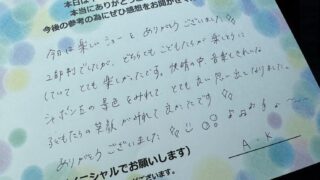 本日は
本当にありがとう
今後の参考の為にぜひ感想をお聞かせ
今日は楽しいショーをありがとうございました
2部制でしたが、どちらもこどもたちが楽しそうに
していて とても 楽しかったです。快晴の中、音楽と
シャボン玉の景色をみれて とても 良い思い出となりました。
子どもたちの笑顔が みれて 良かったです
ありがとう ございました
A.K
ニシャルでお願いします)
ございました。